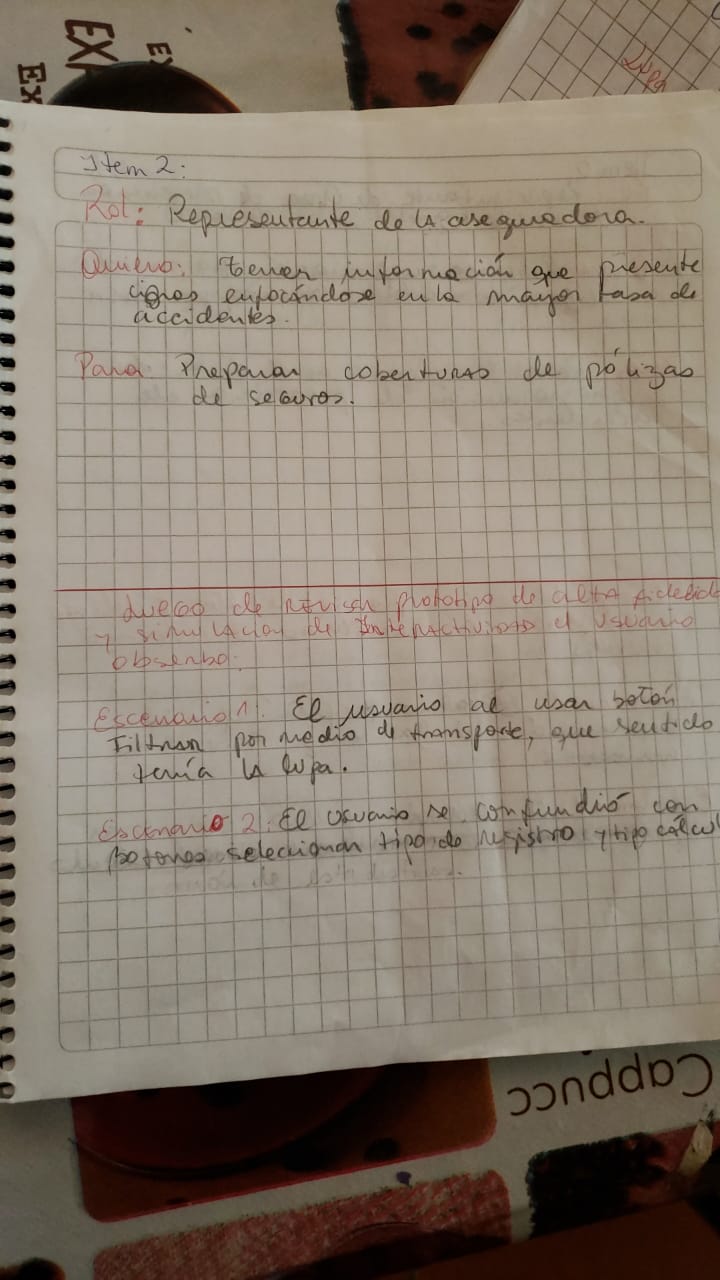 EXP
Ex
Ex
Item 2:
Rol: Representante de la aseguradora.
Quiero: tener información que presente
cifras enfocándose en la mayor tasa de
accidentes.
Para: Preparar coberturas de pólizas
de seguros.
Luego de revisar prototipo de alta fidelid
y simulación de Interactividad el usuario
observa:
Escenario 1: El usuario al usar botón
Filtrar por medio de transporte, que sentido
tenía la lupa.
Escenario 2: El usuario se confundió con
botones seleccionar tipo de registro y tipo cálcul
Cappucc